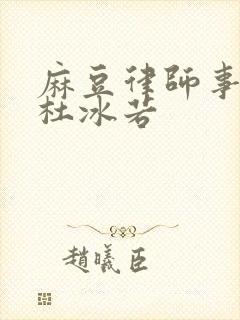 麻豆律師事
杜冰若
趙曦臣